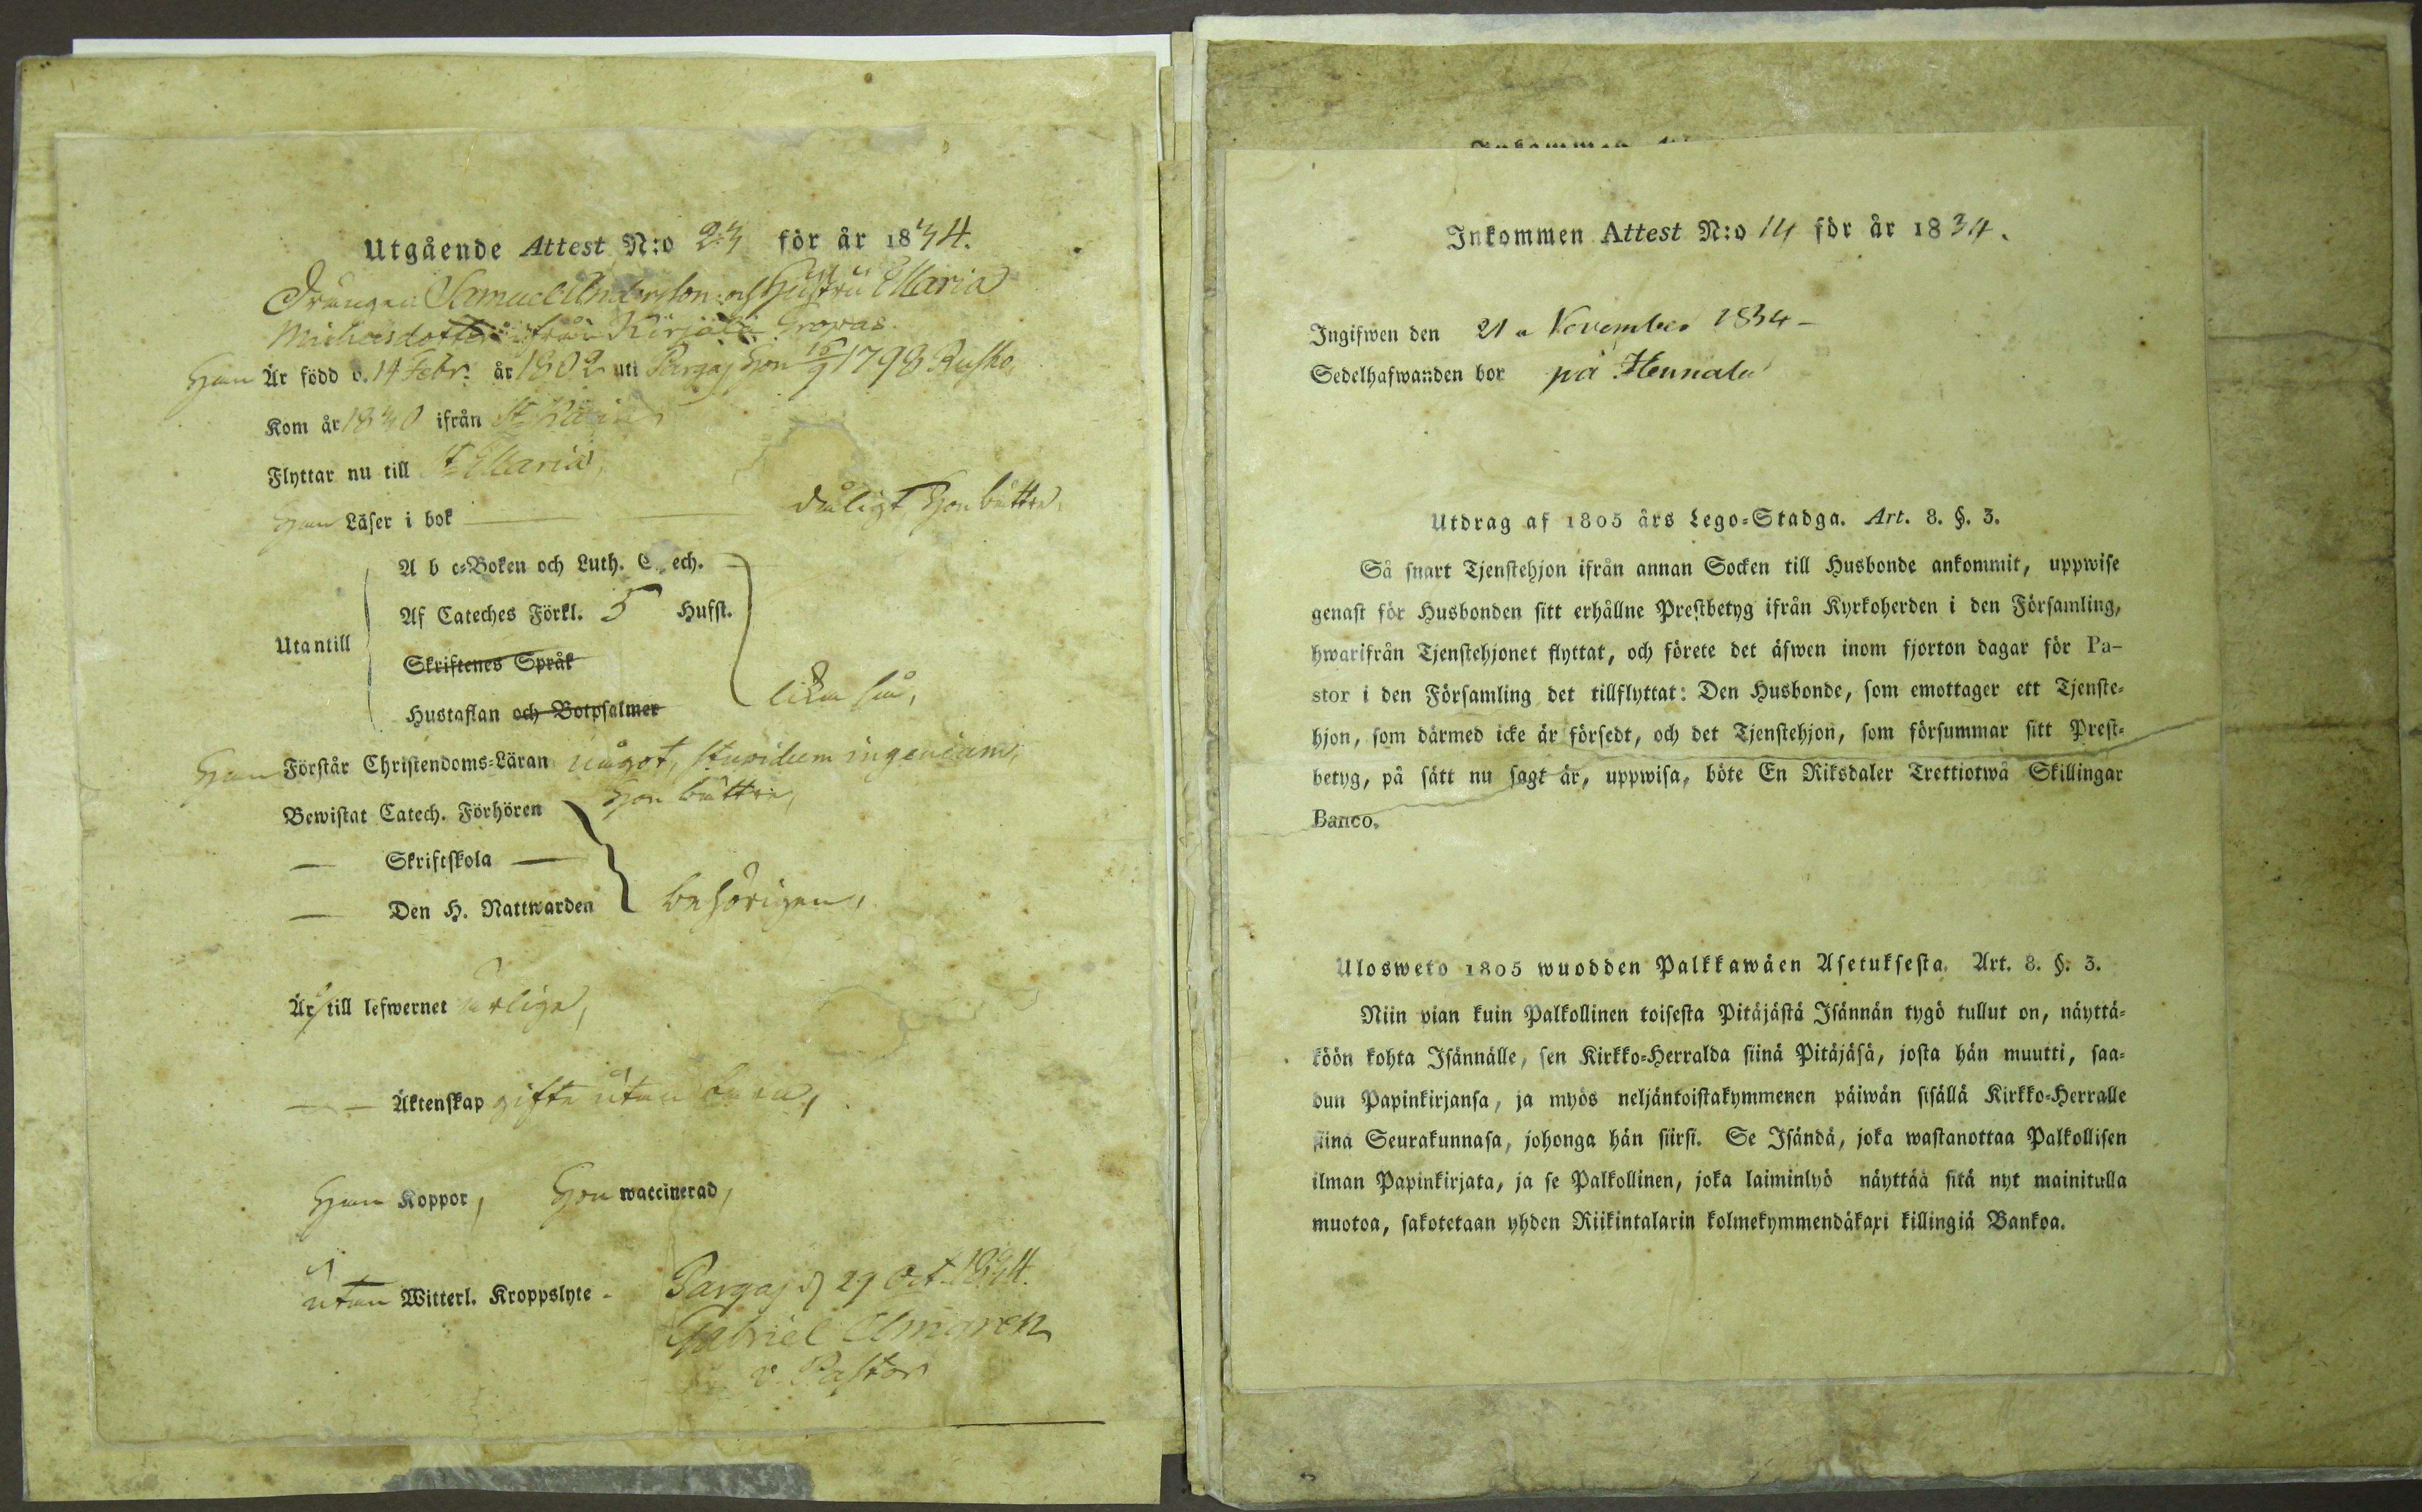 Utgående Attest N:o 23 för år 1834.
Drängen Samuel Andersson och Hustru Maria
Michelsdotter från Kirjala Growas
Han Är född d. 14 Febr. år 1802 uti Pargas, Hon 16/9 1798 Rusko,
Kom år 1830 ifrån St
Flyttar nu till St Maria,
Han Läser i bok — dåligt, Hon bättre,
A b c-Boken och Luth. C ech.
Af Cateches Förkl. 5 Hufst.
Utantill
Skriftenes Språk
Hustaflan och Botpsalmer
lika så,
Han Förstår Christendoms-Läran något, stupidum ingenium,
Hon bättre,
Bewistat Catech. Förhören
— Skriftskola —
— Den H. Nattwarden
behörigen,
Är till lefwernet ärliga,
— — Äktenskap gifte utan barn,
Han Koppor, Hon waccinerad,
utan Witterl. Kroppslyte.
Pargas d 29 Oct. 1834.
Gabriel Almgren
v. Pastor
Inkommen Attest N:o 14 för år 1834.
Ingifwen den 21 November 1834 –
Sedelhafwanden bor på Hennala
Utdrag af 1805 års Lego-Stadga. Art. 8. §. 3.
Så snart Tjenstehjon ifrån annan Socken till Husbonde ankommit, uppwise
genast för Husbonden sitt erhållne Prestbetyg ifrån Kyrkoherden i den Församling,
hwarifrån Tjenstehjonet flyttat, och förete det äfwen inom fjorton dagar för Pa-
stor i den Församling det tillflyttat: Den Husbonde, som emottager ett Tjenste-
hjon, som därmed icke är försedt, och det Tjenstehjon, som försummar sitt Prest-
betyg, på sätt nu sagt är, uppwisa, böte En Riksdaler Trettiotwå Skillingar
Banco.
Ulosweto 1805 wuodden Palkkawäen Asetuksesta. Art. 8. §. 3.
Niin pian kuin Palkollinen toisesta Pitäjästä Isännän tygö tullut on, näyttä-
köön kohta Isännälle, sen Kirkko-Herralda siinä Pitäjäsä, josta hän muutti, saa-
dun Papinkirjansa, ja myös neljäntoistakymmenen päiwän sisällä Kirkko-Herralle
siinä Seurakunnasa, johonga hän siirsi. Se Isändä, joka wastanottaa Palkollisen
ilman Papinkirjata, ja se Palkollinen, joka laiminlyö näyttää sitä nyt mainitulla
muotoa, sakotetaan yhden Riikintalarin kolmekymmendäkaxi killingiä Bankoa.